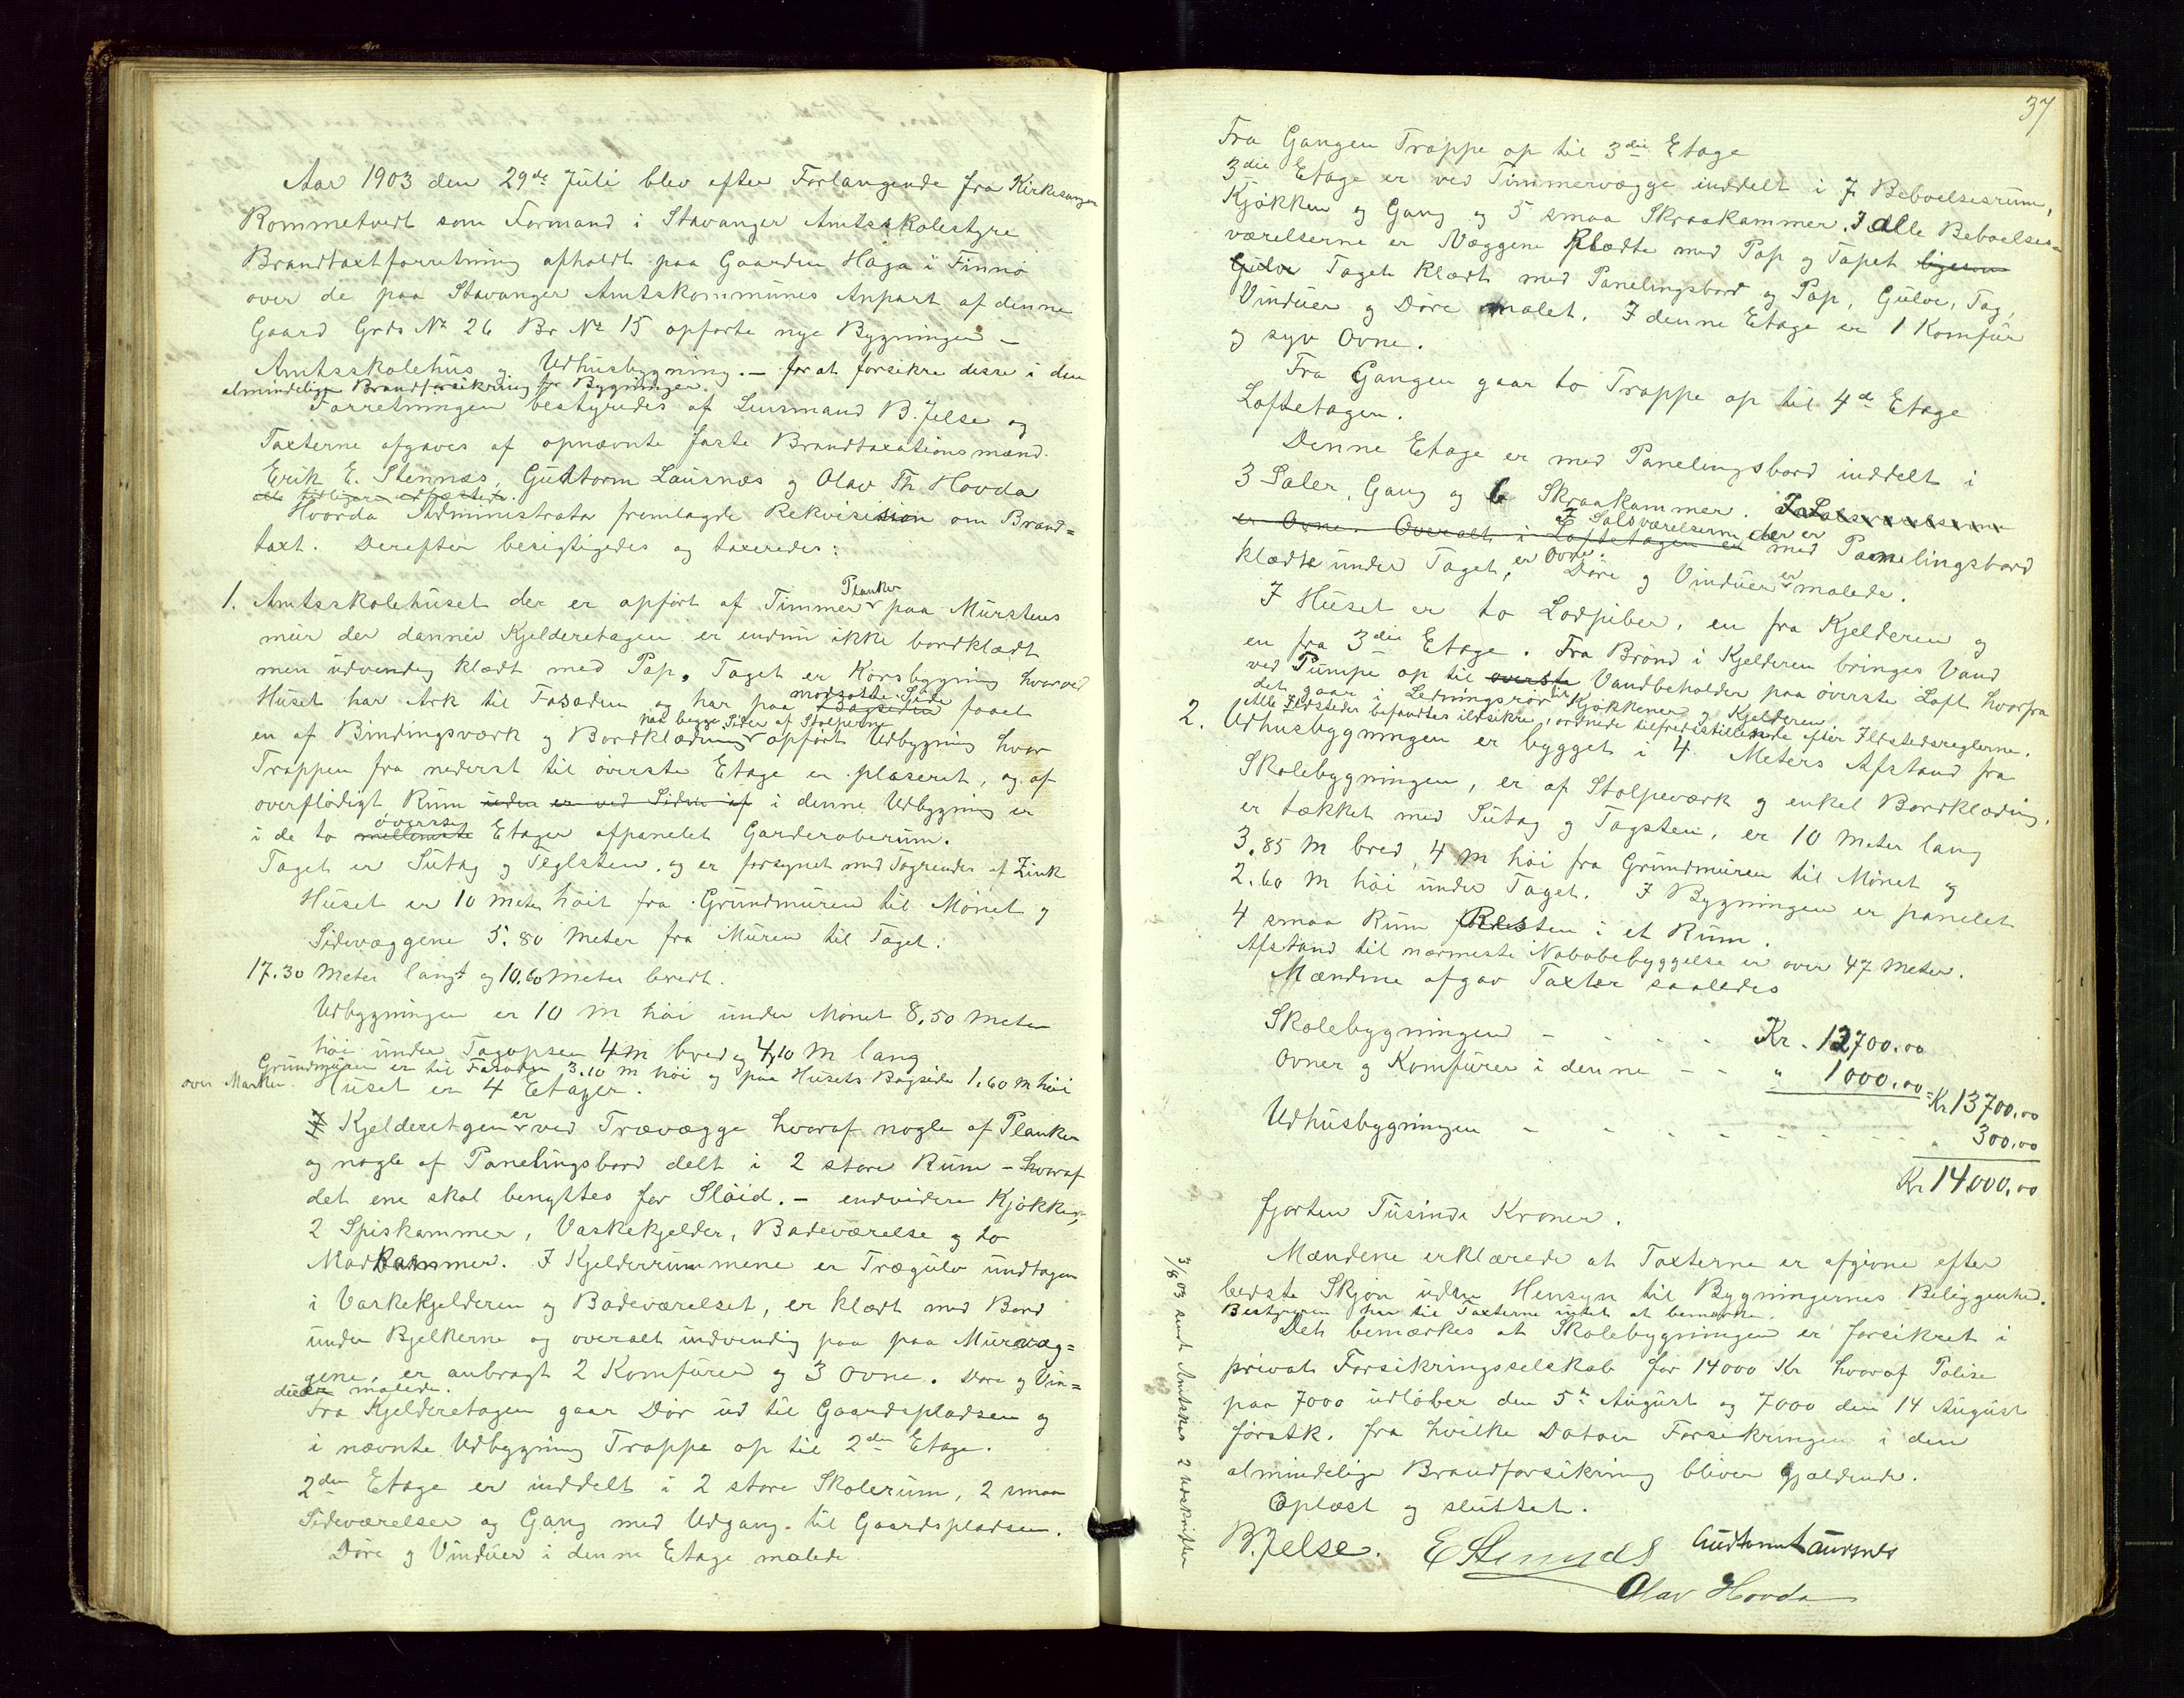 Aar 1903 den 29de Juli blev efter Forlangende fra Kirkesanger
Rommetvedt som Formand i Stavanger Amtsskolestyre
Brandtaxtforretning afholdt paa Gaarden Haga i Finnø
over de paa Stavanger Amtskommunes Anpart af denne
Gaard Grds No 26 Br No 15 opførte nye Bygninger –
Amtsskolehus og Udhusbygning. – for at forsikre disse i den
almindelige Brandforsikring for Bygninger.
Forretningen bestyredes af Lensmand B. Jelse og
Taxterne afgaves af opnævnte faste Brandtaxationsmænd
Erik E. Stennæs, Guttorm Lausnæs og Olav Th. Hovda
alle tidligere edfæstede.
Hvorda Administrator fremlagde Rekvisision om Brand=
taxt. Derefter besigtigedes og taxeredes:
1. Amtsskolehuset der er opført af Timmer Planker paa Murstens
mur der danner Kjelderetagen er endnu ikke bordklædt
men udvendig klædt med Pap. Taget er Korsbygning hvorved
Huset har Ark til Fasaden og har paa Bagsiden modsatte Side faaet
en af Bindingsværk og Bordklædning paa begge Sider af Stolperne opført Udbygning hvor
Trappen fra nederst til øverste Etage er plaseret, og af
overflødigt Rum uden er ved Siden af i denne Udbygning er
i de to mellemste øverste Etager afpanelet Garderoberum.
Taget er Sutag og Teglsten, og er forsynet med Tagrender af Zink
Huset er 10 meter høit fra Grundmuren til Mønet og
Sidevæggene 5.80 Meter fra Muren til Taget.
17.30 Meter langt og 10,60 Meter bredt.
Udbygningen er 10 m høi under Mønet 8,50 meter
høi under Tagopsen 4 m bred og 4,10 M lang
Grundmuren er til Fasaden 3.10 m høi og paa Husets Bagside 1.60 m høi
over Marken. Huset er 4 Etager.
Kjelderetgen er ved Trævægge hvoraf nogle af Planker
og nogle af Panelingsbord delt i 2 store Rum – hvoraf
det ene skal benyttes for Slöid. – endvidere Kjøkken,
2 Spiskammer, Vaskekjelder, Badeværelse og to
Madkammer. I Kjelderrummene er Trægulv undtagen
i Vaskekjelderen og Badeværelset, er klædt med Bord
under Bjelkerne og overalt indvendig paa paa Muræg=
gene, er anbragt 2 Komfurer og 3 Ovne. Døre og Vin=
duer malede.
Fra Kjelderetagen gaar Dør ud til Gaardspladsen og
i nævnte Udbygning Trappe op til 2den Etage.
2den Etage er inddelt i 2 store Skolerum, 2 smaa
Sideværelser og Gang med Udgang til Gaardspladsen.
Døre og Vinduer i denne Etage malede
37
Fra Gangen Trappe op til 3die Etage
3die Etage er ved Timmervægge inddelt i 7 Beboelsesrum,
Kjøkken og Gang og 5 smaa Skraakammer. I alle Beboelses=
værelserne er Væggene Klædte med Pap og Tapet ligesom
Gulve Taget klædt med Panelingsbord og Pap, Gulve, Tag,
Vinduer og Døre malet. I denne Etage er 1 Komfur
og syv Ovne.
Fra Gangen gaar to Trappe op til 4de Etage
Loftetagen.
Denne Etage er med Panelingsbord inddelt i
3 Saler, Gang og 6 Skraakammer. I Salsværelserne
er Ovne. Overalt i Loftetagen er I Salsværelserne der er med Panelingsbord
klædte under Taget, er Ovne. Døre og Vinduer er malede.
I Huset er to Lodpiber, en fra Kjelderen og
en fra 3die Etage. Fra Brønd i Kjelderen bringes Vand
ved Pumpe op til øverste Vandbeholder paa øverste Loft hvorfra
det gaar i Ledningsrør til Kjøkkener og Kjelderen.
Alle Ildsteder befandtes ildsikre, ordnede tilfredsstillende efter Ildstedsreglerne.
2. Udhusbygningen er bygget i 4 Meters Afstand fra
Skolebygningen, er af Stolpeværk og enkel Bordklæding,
er tækket med Sutag og Tagsten, er 10 Meter lang
3.85 M bred, 4 m høi fra Grundmuren til Mønet og
2.60 M høi under Taget. I Bygningen er panelet
4 smaa Rum Resten i et Rum.
Afstand til nærmeste Nabobebyggelse er over 47 Meter.
Mændene afgav Taxter saaledes
Skolebygningen - - - - Kr. 12700.00
Ovner og Komfurer i denne - - " 1000.00 = Kr 13700,00
Udhusbygningen - - - - - - - - " 300,00
Kr 14000,00
fjorten Tusinde Kroner.
Mændene erklærede at Taxterne er afgivne efter
bedste Skjøn uden Hensyn til Bygningernes Beliggenhed.
Bestyreren har til Taxterne intet at bemærke.
Det bemærkes at Skolebygningen er forsikret i
privat Forsikringsselskab for 14000 Kr hvoraf Polise
paa 7000 udløber den 5te August og 7000 den 14 August
førstk. fra hvilke Datoer Forsikringen i den
almindelige Brandforsikring bliver gjældende.
Oplæst og sluttet.
B. Jelse. E Stennæs Guttorm Lausnes
Olav Hovda
3/8 03 sendt Amtskas 2 Udskrifter